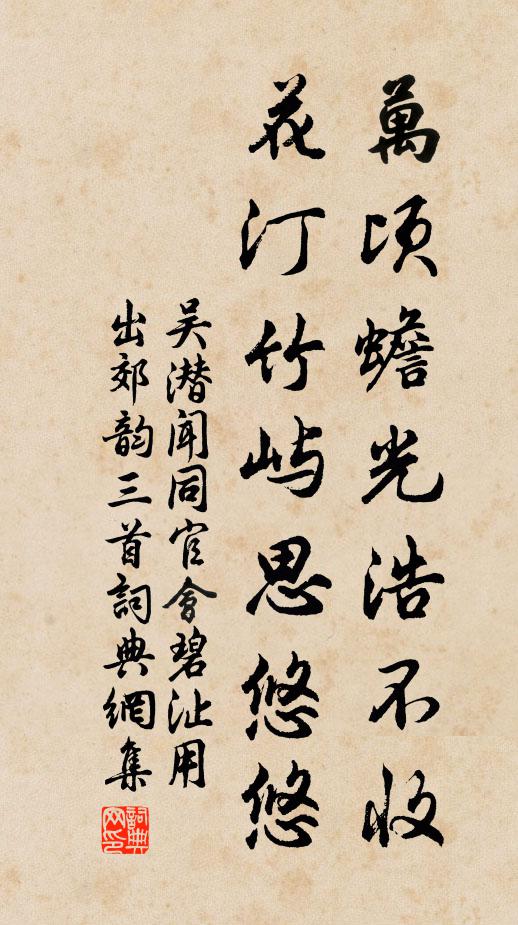 萬頃蟾光浩不收
花汀竹屿思悠悠
吴潜闻同官会碧沚用
出郊韵三首詞典網集
詞典网印